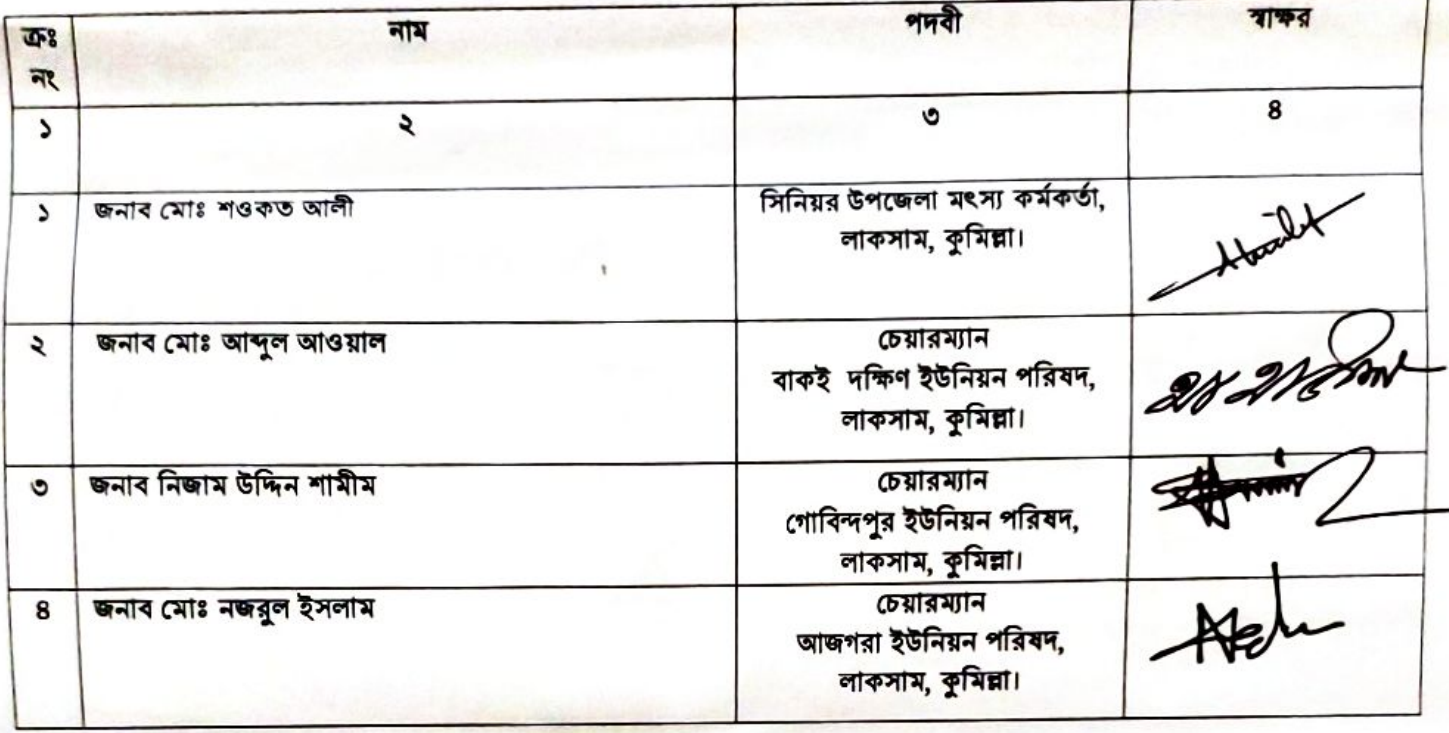 ক্রঃ নাম পদবী স্বাক্ষর
নং
১ ২ ৩ ৪
১ জনাব মোঃ শওকত আলী সিনিয়র উপজেলা মৎস্য কর্মকর্তা,
লাকসাম, কুমিল্লা।
২ জনাব মোঃ আব্দুল আওয়াল চেয়ারম্যান
বাকই দক্ষিণ ইউনিয়ন পরিষদ,
লাকসাম, কুমিল্লা।
৩ জনাব নিজাম উদ্দিন শামীম চেয়ারম্যান
গোবিন্দপুর ইউনিয়ন পরিষদ,
লাকসাম, কুমিল্লা।
৪ জনাব মোঃ নজরুল ইসলাম চেয়ারম্যান
আজগরা ইউনিয়ন পরিষদ,
লাকসাম, কুমিল্লা।